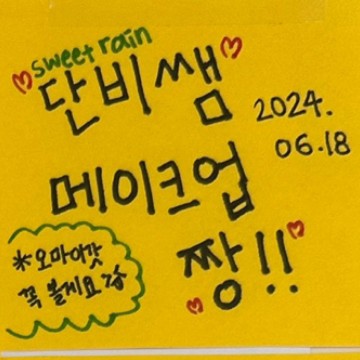 sweet rain
♡단비쌤♡
2024.
06.18
메이크업
짱!!
*오마이갓
꼭 볼게요